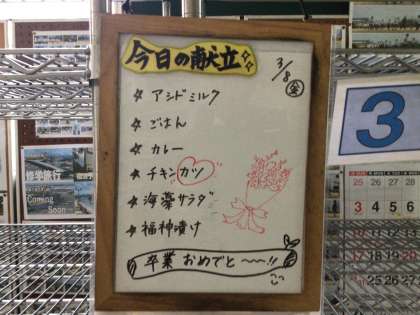 今日の献立
3/8 金
☆ アシドミルク
☆ ごはん
☆ カレー
☆ チキンカツ
☆ 海藻サラダ
☆ 福神漬け
卒業おめでと〜〜!!
3
修学旅行
Coming
Soon
25 26 27 28
3 4 5 6